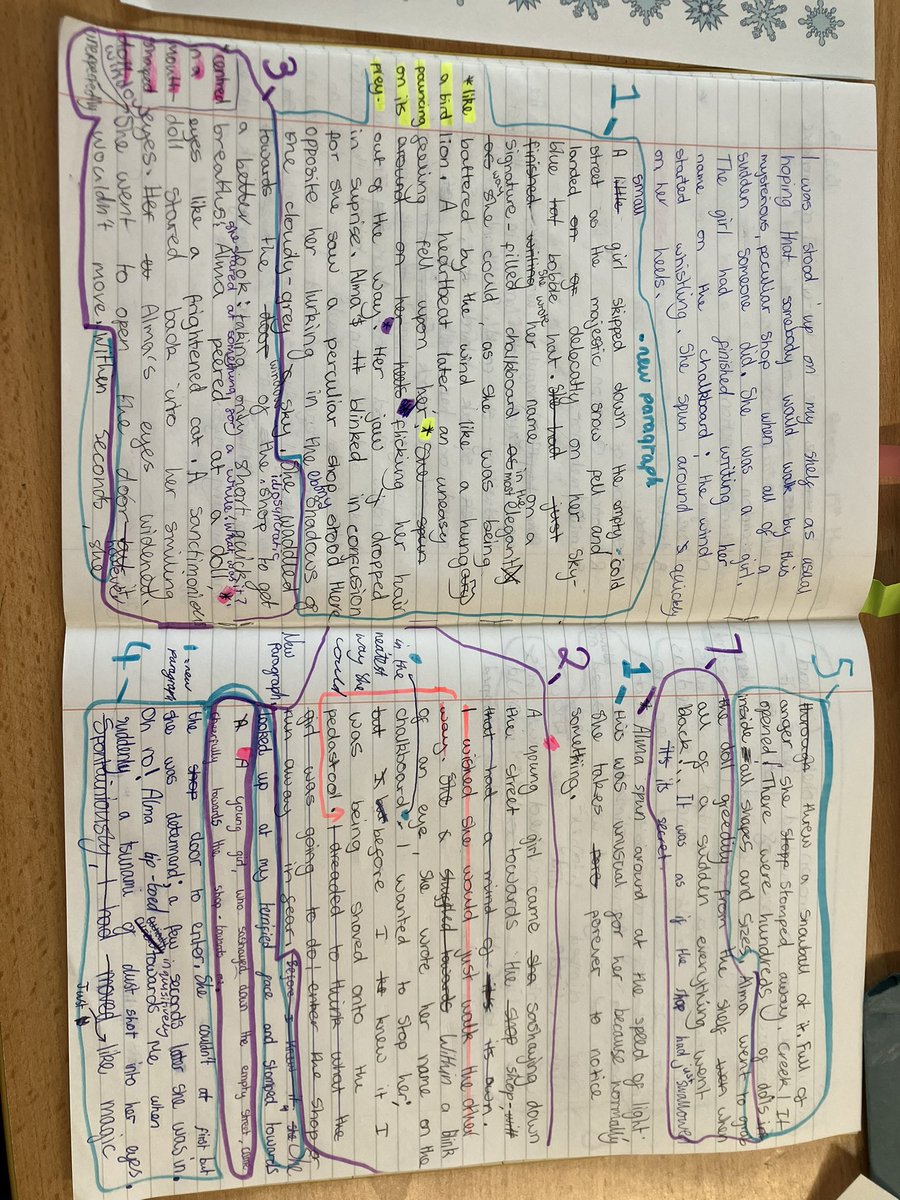 I was stood up on my shelf as usual
hoping that somebody would walk by this
mysterious, peculiar shop when all of a
sudden someone did. She was a girl.
The girl had finished writing her
name on the chalkboard, the wind
started whistling. She spun around quickly
on her heels.
1. - new paragraph
small
A little girl skipped down the empty, cold
street as the majestic snow fell and
landed delecatly on her sky-
blue bobble hat. She had just
she wrote
finished writing her name on a
signature-filled chalkboard in the most elegant
way she could, as she was being
battered by the wind like a hungry
lion. A heartbeat later an uneasy
feeling fell upon her.* She spun
around on her heels flicking her hair
out of the way. Her jaw dropped
in suprise. Alma blinked in confusion
for she saw a perculiar shop stood there
opposite her lurking in the ebony shadows of
the cloudy-grey sky. She waddled
*like
a bird
pouncing
on its
prey.
3.
towards the door window of the idiosyncratic shop to get
a better look; taking only short, quick
breaths; Alma peered at a doll
she stared at something for a while, what was it?
eyes like a frightened cat. A sanctimonious
doll stared back into her smiling
eyes. Her Almars eyes widend.
She went to open the door but it
wouldn't move. Within seconds, she
unexpectedly
5.
threw a snowball at it. Full of
anger she stomped away. Creek It
opened! There were hundreds of dolls
inside all shapes and sizes, Alma went to grab
the doll greedily from the shelf when
7.
all of a sudden everything went
black!.. It was as if the shop had just swallowed
its secret.
1.
Alma spun around at the speed of light
this was unusual for her because normally
she takes forever to notice
something.
2.
A young girl came sashaying down
the street towards the shop,
that had a mind of its own.
I wished she would just walk the other
way. She Within a blink
of an eye, she wrote her name on the
chalkboard. I wanted to stop her;
but before I knew it I
was being shoved onto the
pedastool. I dreaded to think what the
girl was going to do! enter the shop or
run away in fear. Before I knew it she
in the
neatest
way she
could
New
Paragraph
looked up at my terrified face and stomped towards
A young girl, who sashayed down the empty street, came
cheerfully towards the shop
the shop door to enter. She couldn't at first but
she was determind; a few seconds later she was in.
Oh no! Alma tip-toed inquisitively towards me when
suddenly a tsunami of dust shot into her eyes.
- new
paragraph
4.
Spontainiously, I had moved like magic
Just